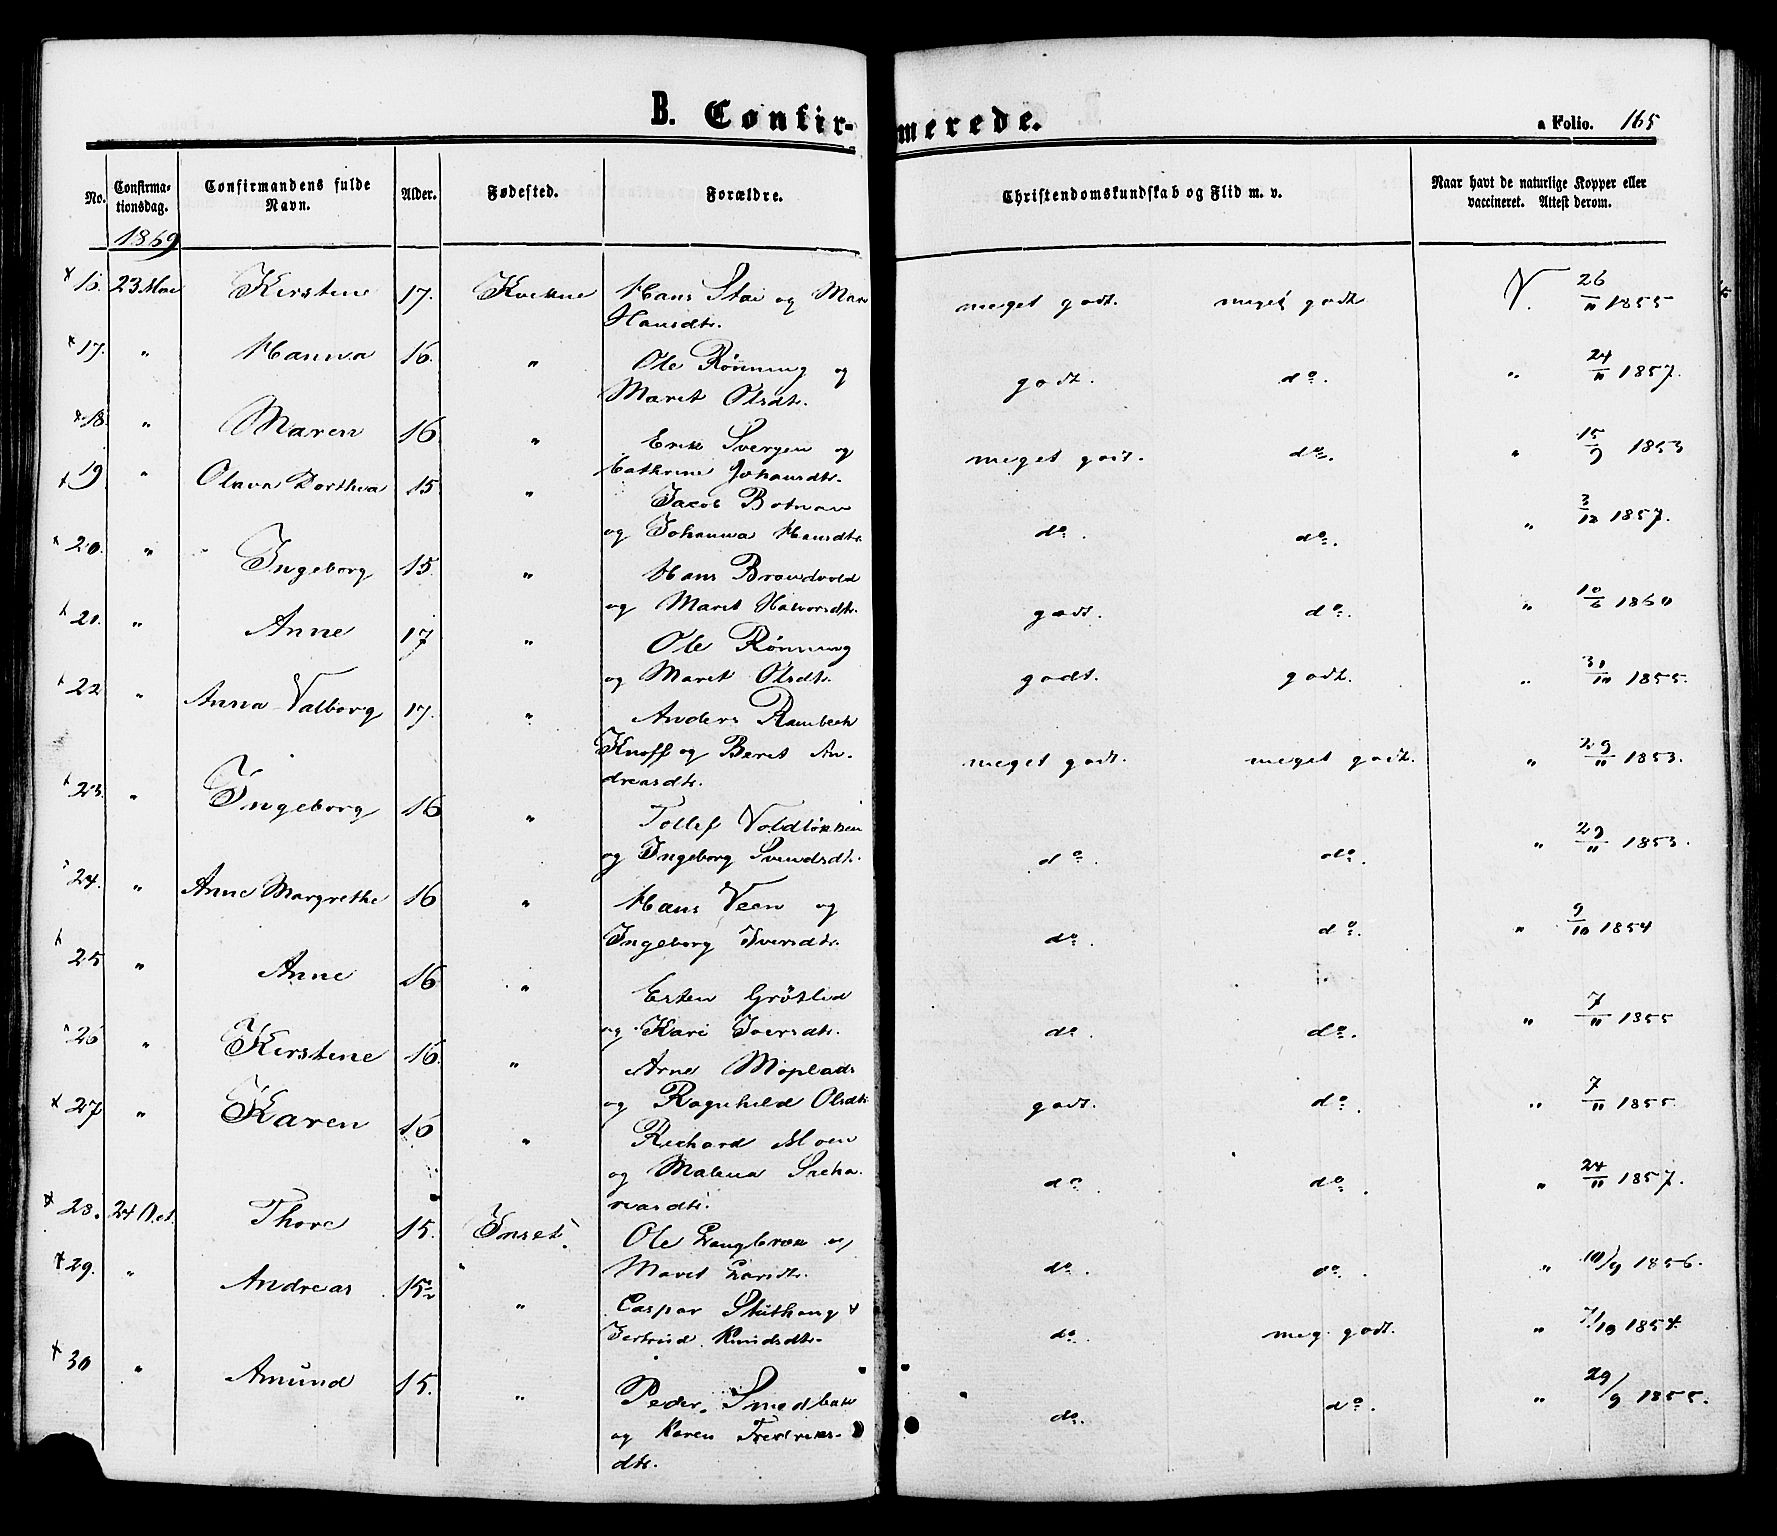 B. Confirmerede.
a Folio. 165
No. Confirmationsdag. Confirmandens fulde Navn. Alder. Fødested. Forældre. Christendomskundskab og Flid m. v. Naar havt de naturlige Kopper eller vaccineret. Attest derom.
1869
16. 23 Mai Kirstine 17. Kvikne Hans Stai og Mari meget godt. meget godt V. 26/11 1855
Hansdtr.
17. " Hanna 16. " Ole Rønning og godt. do. " 24/11 1857.
Maret Olsdtr.
18. " Maren 16 " Erik Svergen og meget godt. do. " 15/9 1853
Cathrine Johansdtr.
19 " Olava Dorthea 15 " Jacob Botnan do. do. " 3/12 1857.
og Johanna Hansdtr.
20. " Ingeborg 15. " Hans Brandvold godt. do. " 10/6 1860
og Maret Halvorsdtr.
21. " Anne 17 " Ole Rønning godt. godt. " 31/10 1855.
og Maret Olsdtr.
22 " Anna Valborg 17. " Anders Rambech meget godt. meget godt. " 29/11 1853.
Knoff og Beret An-
dreasdtr.
23. " Ingeborg 16 " Tollef Voldløkken do. do. " 29/11 1853.
og Ingeborg Svendsdtr.
24. " Anne Margrethe 16 " Hans Veen og do. do. " 9/10 1854
Ingeborg Iversdtr.
25 " Anne 16 " Esten Grøtlid do. do. " 7/11 1855
og Kari Iversdtr.
26 " Kirstine 16. " Arne Moplads godt. do. " 7/11 1855.
og Ragnhild Olsdtr
27 " Karen 16 " Richard Moen do. do. " 24/11 1857.
og Malena
28. 24 Oct. Thore 15. Inset. Ole Langbræk og do. do. " 10/9 1856.
Maret Larsdtr.
29. " Andreas 15½ " Caspar Stuthaug & do. meg. godt. " 7/10 1854.
Jertrud Knudsdtr.
30 " Amund 15. " Peder Smedbak do. do. " 29/9 1855.
og Karen Fredriks-
dtr.